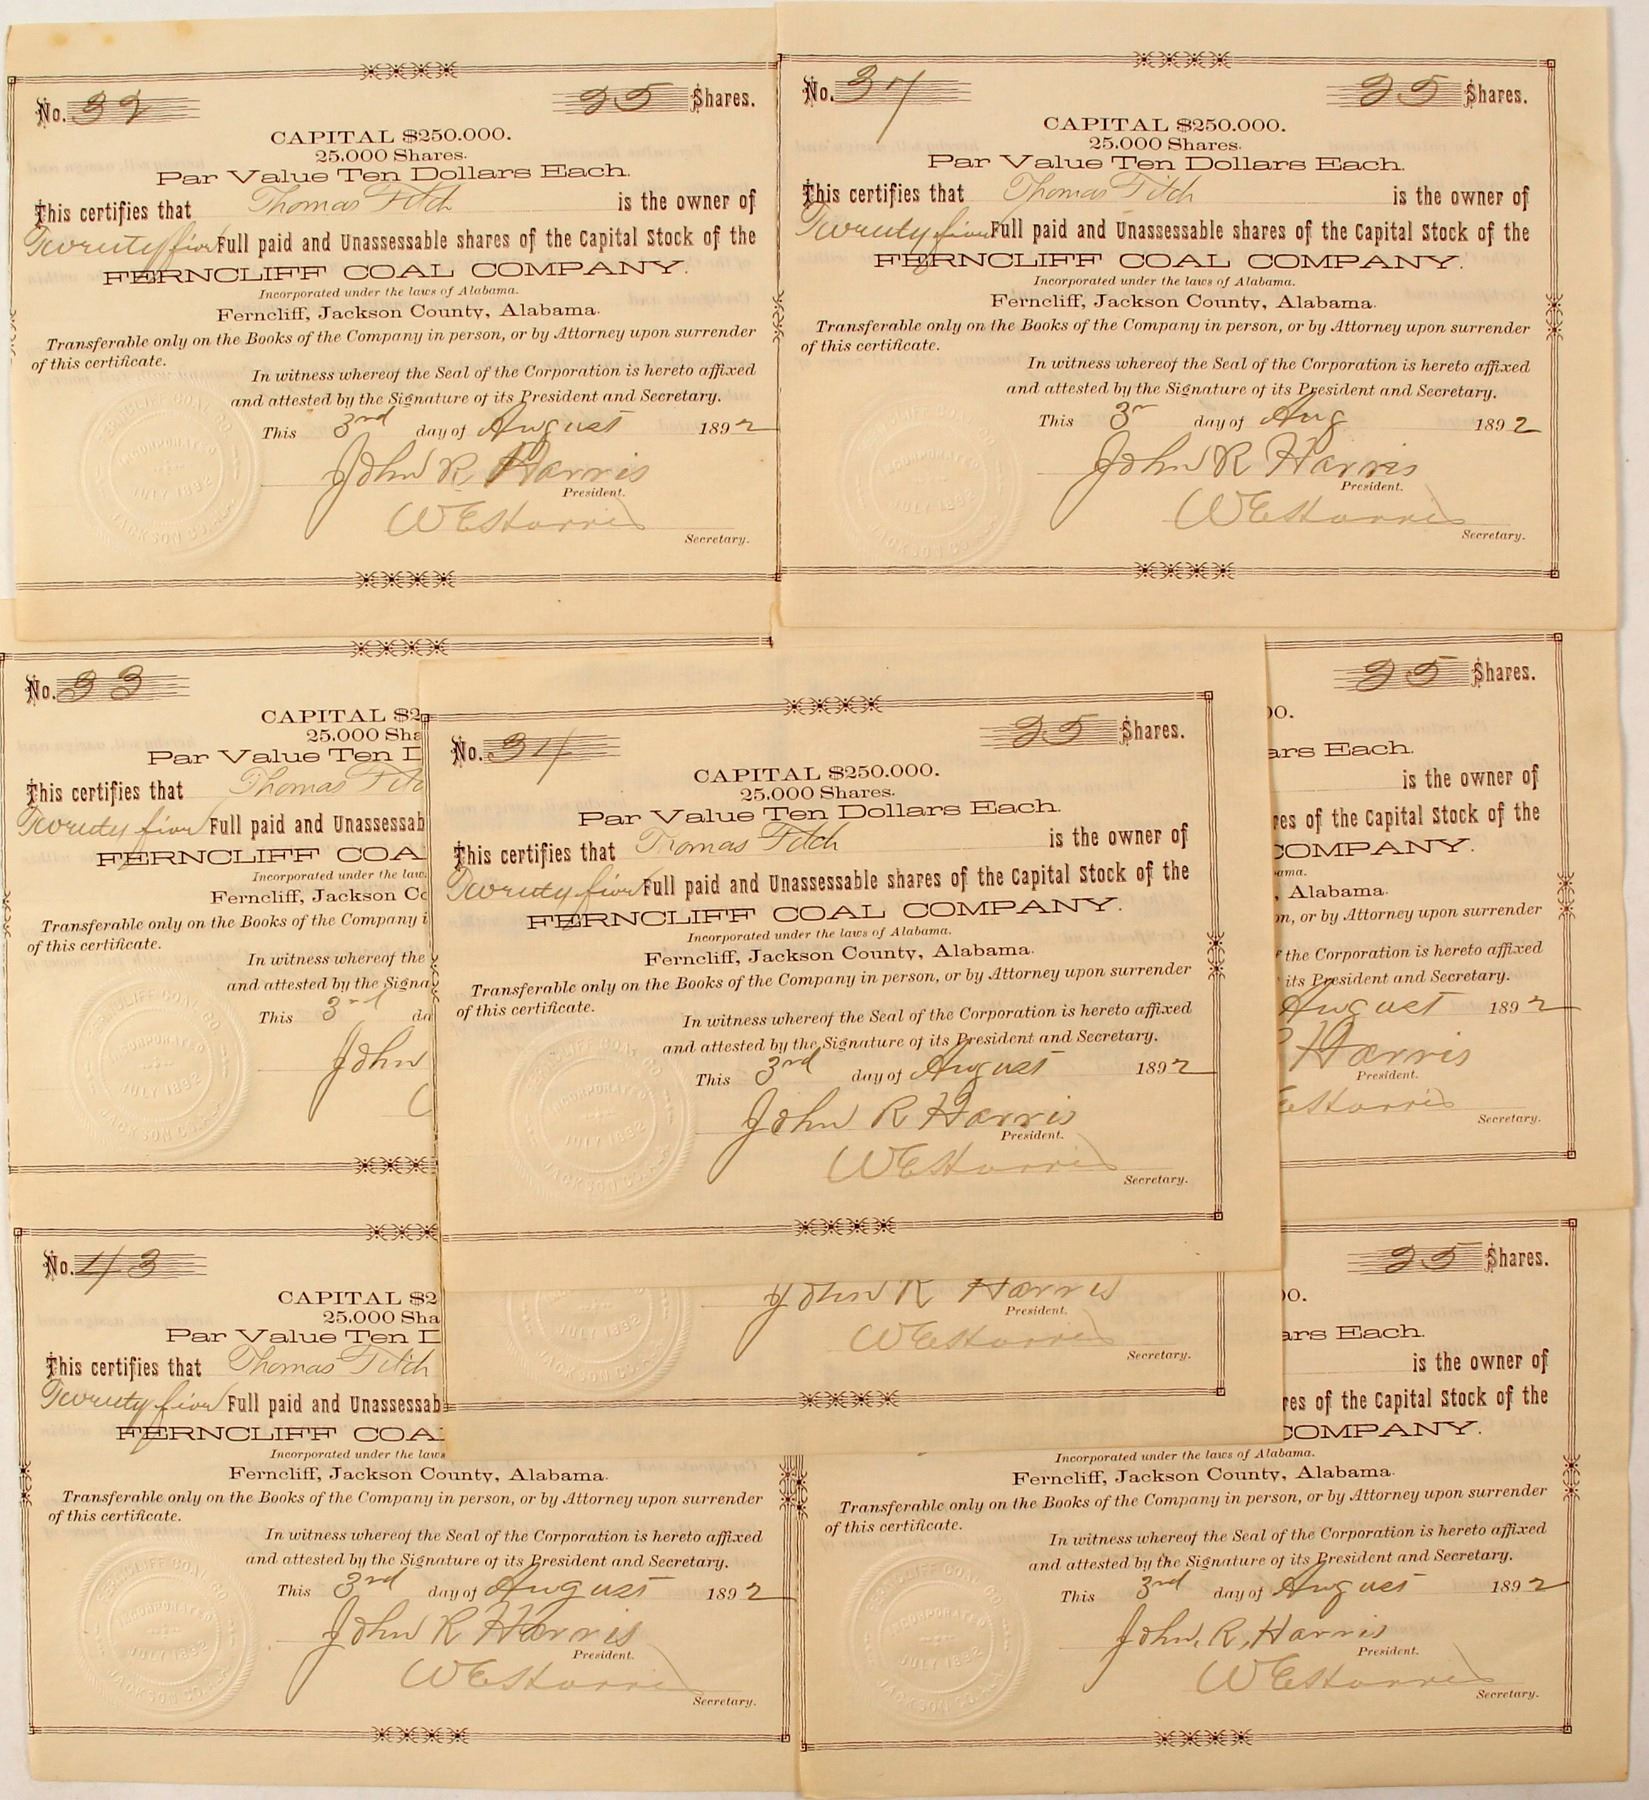 No. 32 25 Shares.
CAPITAL $250.000.
25.000 Shares.
Par Value Ten Dollars Each.
This certifies that Thomas Fitch is the owner of
Twenty five Full paid and Unassessable shares of the Capital Stock of the
FERNCLIFF COAL COMPANY.
Incorporated under the laws of Alabama.
Ferncliff, Jackson County, Alabama.
Transferable only on the Books of the Company in person, or by Attorney upon surrender
of this certificate.
In witness whereof the Seal of the Corporation is hereto affixed
and attested by the Signature of its President and Secretary.
This 3rd day of August 1892
John R Harris
President.
W E Harris
Secretary.
FERNCLIFF COAL CO
INCORPORATED
JULY 1892
JACKSON CO. ALA
No. 37 25 Shares.
CAPITAL $250.000.
25.000 Shares.
Par Value Ten Dollars Each.
This certifies that Thomas Fitch is the owner of
Twenty five Full paid and Unassessable shares of the Capital Stock of the
FERNCLIFF COAL COMPANY.
Incorporated under the laws of Alabama.
Ferncliff, Jackson County, Alabama.
Transferable only on the Books of the Company in person, or by Attorney upon surrender
of this certificate.
In witness whereof the Seal of the Corporation is hereto affixed
and attested by the Signature of its President and Secretary.
This 3r day of Aug 1892
John R Harris
President.
W E Harris
Secretary.
INCORPORATED
JULY 1892
JACKSON CO. ALA
No. 33
CAPITAL $2
25.000 Sha
Par Value Ten D
This certifies that Thomas Fitc
Twenty five Full paid and Unassessab
FERNCLIFF COA
Incorporated under the law
Ferncliff, Jackson Co
Transferable only on the Books of the Company i
of this certificate.
In witness whereof the
and attested by the Signa
This 3rd da
John
FERNCLIFF COAL CO
INCORPORATED
JULY 1892
JACKSON CO. ALA
No. 34 25 Shares.
CAPITAL $250.000.
25.000 Shares.
Par Value Ten Dollars Each.
This certifies that Thomas Fitch is the owner of
Twenty five Full paid and Unassessable shares of the Capital Stock of the
FERNCLIFF COAL COMPANY.
Incorporated under the laws of Alabama.
Ferncliff, Jackson County, Alabama.
Transferable only on the Books of the Company in person, or by Attorney upon surrender
of this certificate.
In witness whereof the Seal of the Corporation is hereto affixed
and attested by the Signature of its President and Secretary.
This 3rd day of August 1892
John R Harris
President.
W E Harris
Secretary.
FERNCLIFF COAL CO
INCORPORATED
JULY 1892
JACKSON CO. ALA
25 Shares.
00.
ars Each.
is the owner of
res of the Capital Stock of the
COMPANY.
ama.
, Alabama.
n, or by Attorney upon surrender
f the Corporation is hereto affixed
its President and Secretary.
August 1892
Harris
President.
E Harris
Secretary.
John R Harris
President.
W E Harris
Secretary.
JULY 1892
JACKSON CO. ALA
No. 43
CAPITAL $2
25.000 Sha
Par Value Ten D
This certifies that Thomas Fitch
Twenty five Full paid and Unassessab
FERNCLIFF COA
Incorporated under the laws
Ferncliff, Jackson County, Alabama.
Transferable only on the Books of the Company in person, or by Attorney upon surrender
of this certificate.
In witness whereof the Seal of the Corporation is hereto affixed
and attested by the Signature of its President and Secretary.
This 3rd day of August 1892
John R Harris
President.
W E Harris
Secretary.
FERNCLIFF COAL CO
INCORPORATED
JULY 1892
JACKSON CO. ALA
25 Shares.
00.
ars Each.
is the owner of
res of the Capital Stock of the
COMPANY.
Incorporated under the laws of Alabama.
Ferncliff, Jackson County, Alabama.
Transferable only on the Books of the Company in person, or by Attorney upon surrender
of this certificate.
In witness whereof the Seal of the Corporation is hereto affixed
and attested by the Signature of its President and Secretary.
This 3rd day of August 1892
John. R. Harris
President.
W E Harris
Secretary.
FERNCLIFF COAL CO
INCORPORATED
JULY 1892
JACKSON CO. ALA